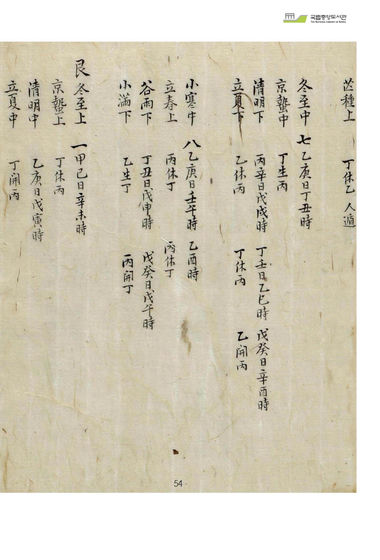 국립중앙도서관
芒種上 丁休乙 人遁
冬至中 七乙庚日丁丑時
京蟄中 丁生丙
清明下 丙辛日戊戌時 丁壬日乙巳時 戊癸日辛酉時
立夏下 乙休丙 丁休丙 乙開丙
小寒中 八乙庚日壬午時 乙酉時
立春上 丙休丁 丙休丁
谷雨下 丁丑日戊申時 戊癸日戊午時
小滿下 乙生丁 丙開丁
艮 冬至上 一甲己日辛未時
京蟄上 丁休丙
清明中 乙庚日戊寅時
立夏中 丁開丙
54